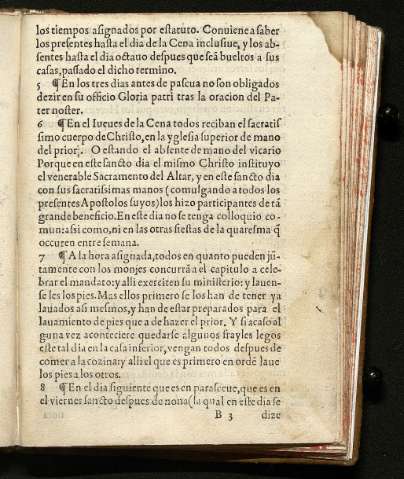 los tiempos asignados por estatuto. Conuiene a saber
los presentes hasta el dia de la Cena inclusiue, y los ab-
sentes hasta el dia octauo despues que seã bueltos a sus
casas, passado el dicho termino.
5 ¶ En los tres dias antes de pascua no son obligados
dezir en su officio Gloria patri tras la oracion del Pa-
ter noster.
6 ¶ En el Iueues de la Cena todos reciban el sacratis
simo cuerpo de Christo, en la yglesia superior de mano
del prior. O estando el absente de mano del vicario
Porque en este sancto dia el mismo Christo instituyo
el venerable Sacramento del Altar, y en este sancto dia
con sus sacratissimas manos (comulgando a todos los
presentes Apostolos suyos) los hizo participantes de tã
grande beneficio. En este dia no se tenga colloquio co-
mun: assi como, ni en las otras fiestas de la quaresma q̃
occuren entre semana.
7 ¶ A la hora asignada, todos en quanto pueden jũ-
tamente con los monjes concurrã a el capitulo a cele-
brar el mandato: y alli exerciten su ministerio: y lauen-
se les los pies. Mas ellos primero se los han de tener ya
lauados asi mesmos, y han de estar preparados para el
lauamiento de pies que a de hazer el prior. Y si acaso al
guna vez aconteciere quedarse algunos frayles legos
este tal dia en la casa inferior, vengan todos despues de
comer a la cozina: y alli el que es primero en ordẽ laue
los pies a los otros.
8 ¶ En el dia siguiente que es en parasceue, que es en
el viernes sancto despues de nona (la qual en este dia se
B 3 dize